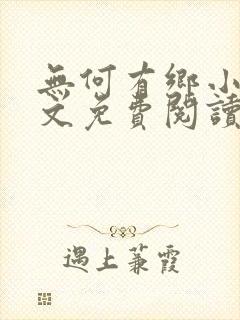 無何有鄉小
文免費閱讀
遇上蒹霞